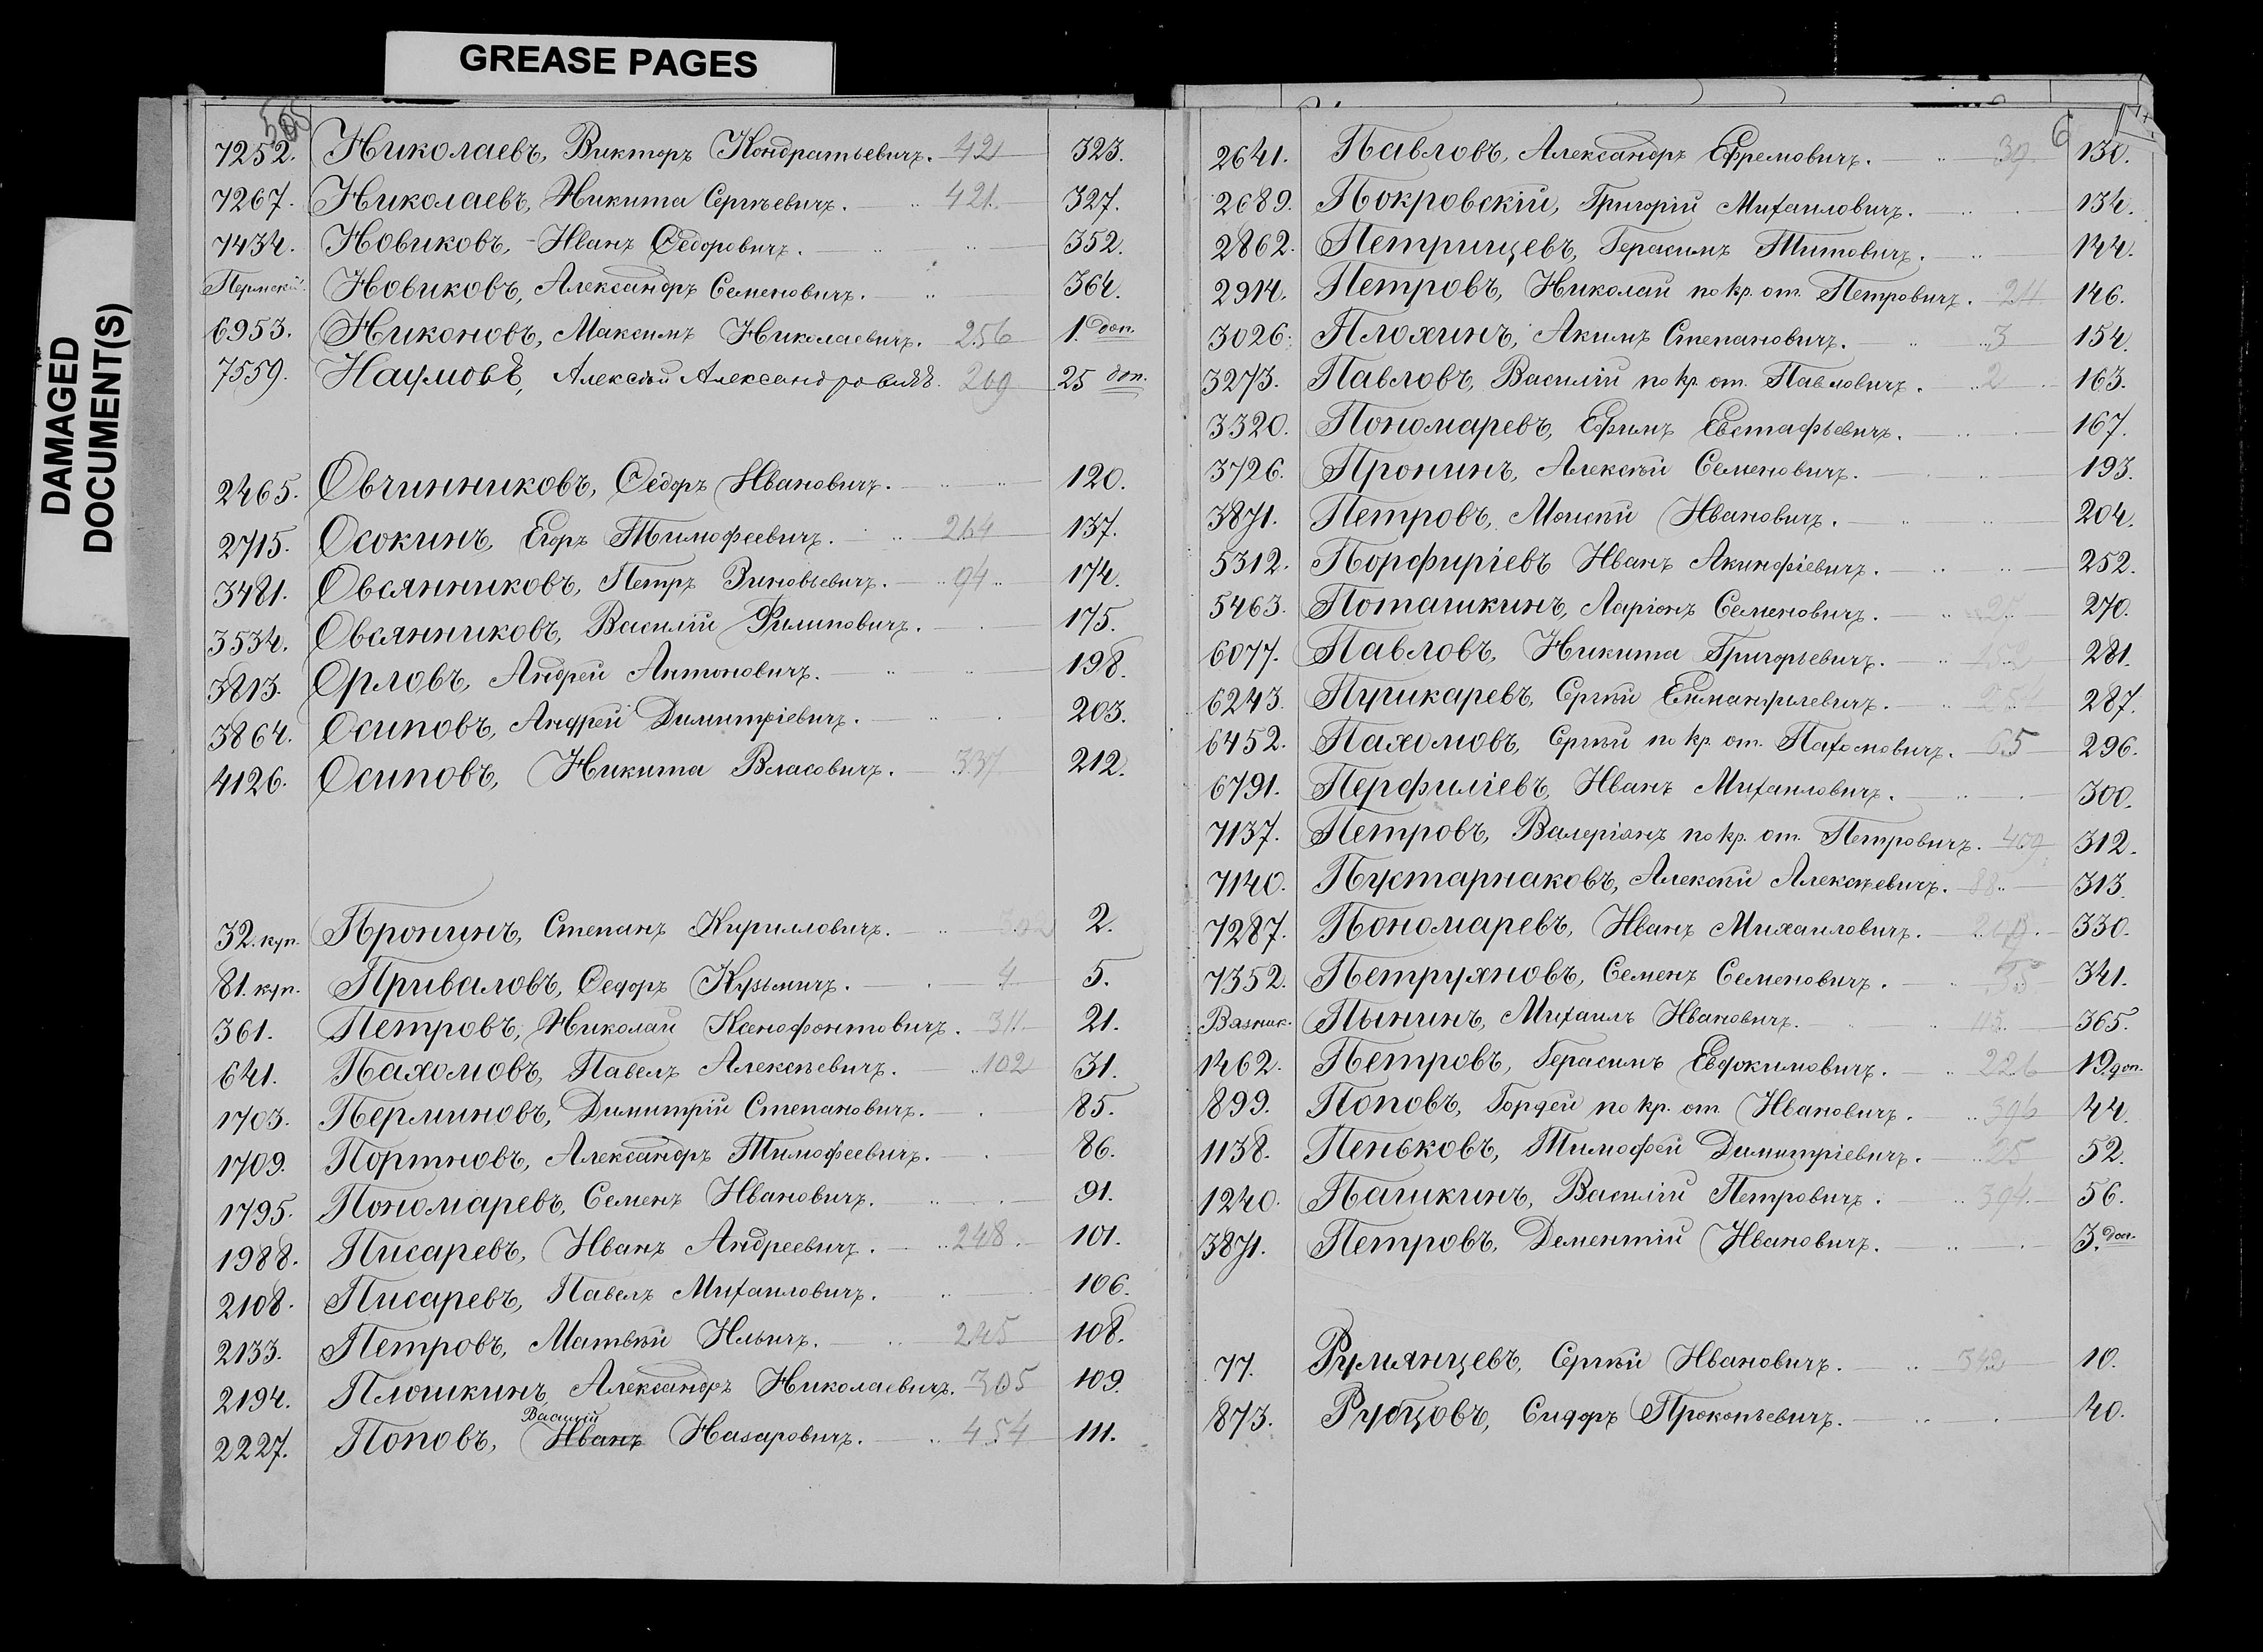 GREASE PAGES
DAMAGED
DOCUMENT(S)
7252. Николаевъ, Викторъ Кондратьевичъ. 42 323.
7267. Николаевъ, Никита Сергѣевичъ. 421. 327.
7434. Новиковъ, Иванъ Ѳедоровичъ. 352.
Пермскій. Новиковъ, Александръ Семеновичъ. 364.
6953. Никоновъ, Максимъ Николаевичъ. 256 1. доп.
7559. Наумовъ, Алексѣй Александровичъ. 269 25 доп.
2465. Овчинниковъ, Ѳедоръ Ивановичъ. 120.
2715. Осокинъ, Егоръ Тимофеевичъ. 264 137.
3481. Овсянниковъ, Петръ Зиновьевичъ. 94 174.
3534. Овсянниковъ, Василій Филиповичъ. 175.
3813. Орловъ, Андрей Антоновичъ. 198.
3864. Осиповъ, Андрей Димитріевичъ. 203.
4126. Осиповъ, Никита Власовичъ. 337. 212.
32. куп. Пронинъ, Степанъ Кирилловичъ. 2.
81. куп. Приваловъ, Ѳедоръ Кузьмичъ. 4 5.
361. Петровъ, Николай Ксенофонтовичъ. 311 21.
641. Пахомовъ, Павелъ Алексѣевичъ. 102 31.
1703. Перминовъ, Димитрій Степановичъ. 85.
1709. Портновъ, Александръ Тимофеевичъ. 86.
1795. Пономаревъ, Семенъ Ивановичъ. 91.
1988. Писаревъ, Иванъ Андреевичъ. 248. 101.
2108. Писаревъ, Павелъ Михаиловичъ. 106.
2133. Петровъ, Матвѣй Ильичъ. 245 108.
2194. Плюшкинъ, Александръ Николаевичъ. 305 109.
Василій
2227. Поповъ, Иванъ Назаровичъ. 454 111.
6
2641. Павловъ, Александръ Ефремовичъ. 39 130.
2689. Покровскій, Григорій Михаиловичъ. 134.
2862. Петрищевъ, Герасимъ Титовичъ. 144.
2914. Петровъ, Николай по кр. от. Петровичъ. 211 146.
3026. Плохинъ, Акимъ Степановичъ. 3 154.
3273. Павловъ, Василій по кр. от. Павловичъ. 2 163.
3320. Пономаревъ, Ефимъ Евстафьевичъ. 167.
3726. Пронинъ, Алексѣй Семеновичъ. 193.
3871. Петровъ, Моисѣй Ивановичъ. 204.
5312. Порфиріевъ Иванъ Акинфіевичъ. 252.
5463. Поташкинъ, Ларіонъ Семеновичъ. 270.
6077. Павловъ, Никита Григорьевичъ. 281.
6243. Пушкаревъ, Сергѣй 287.
6452. Пахомовъ, Сергѣй по кр. от. Пахомовичъ. 65 296.
6791. Перфиліевъ, Иванъ Михаиловичъ. 300.
7137. Петровъ, Валеріанъ по кр. от. Петровичъ. 409. 312.
7140. Пустарнаковъ, Алексѣй Алексѣевичъ. 88 313.
7287. Пономаревъ, Иванъ Михаиловичъ. 330.
7352. Петруяновъ, Семенъ Семеновичъ. 341.
Вазник. Пынинъ, Михаилъ Ивановичъ. 365.
1462. Петровъ, Герасимъ Евдокимовичъ. 226 19. доп.
899. Поповъ, Гордей по кр. от. Ивановичъ. 396 44.
1138. Пеньковъ, Тимофей Димитріевичъ. 25 52.
1240. Пашкинъ, Василій Петровичъ. 394. 56.
3871. Петровъ, Дементій Ивановичъ. 3. доп.
77. Румянцевъ, Сергѣй Ивановичъ. 342 10.
873. Рубцовъ, Сидоръ Прокопьевичъ. 40.